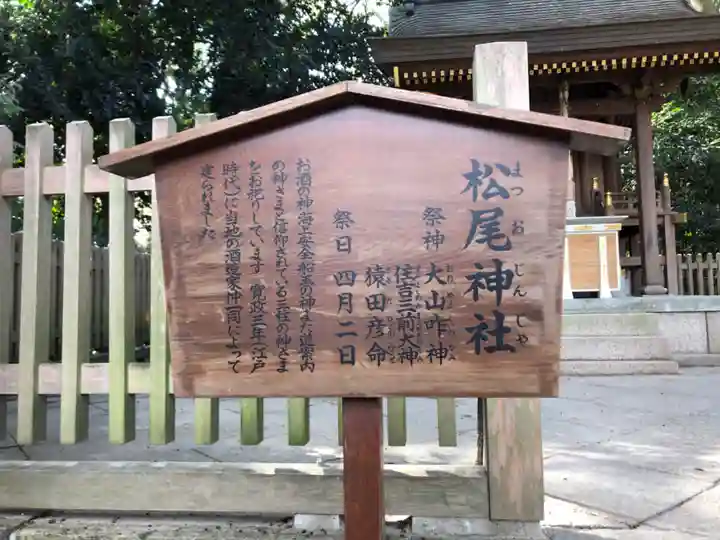 松尾神社
まつおじんしゃ
祭神 大山咋神
住吉三前大神
猿田彦命
祭日 四月二日
お酒の神海上安全船玉の神また道案内
の神さまと信仰されている三柱の神さま
をお祀りしています 寛政三年(江戸
時代)に当地の酒造家仲間によって
建られました